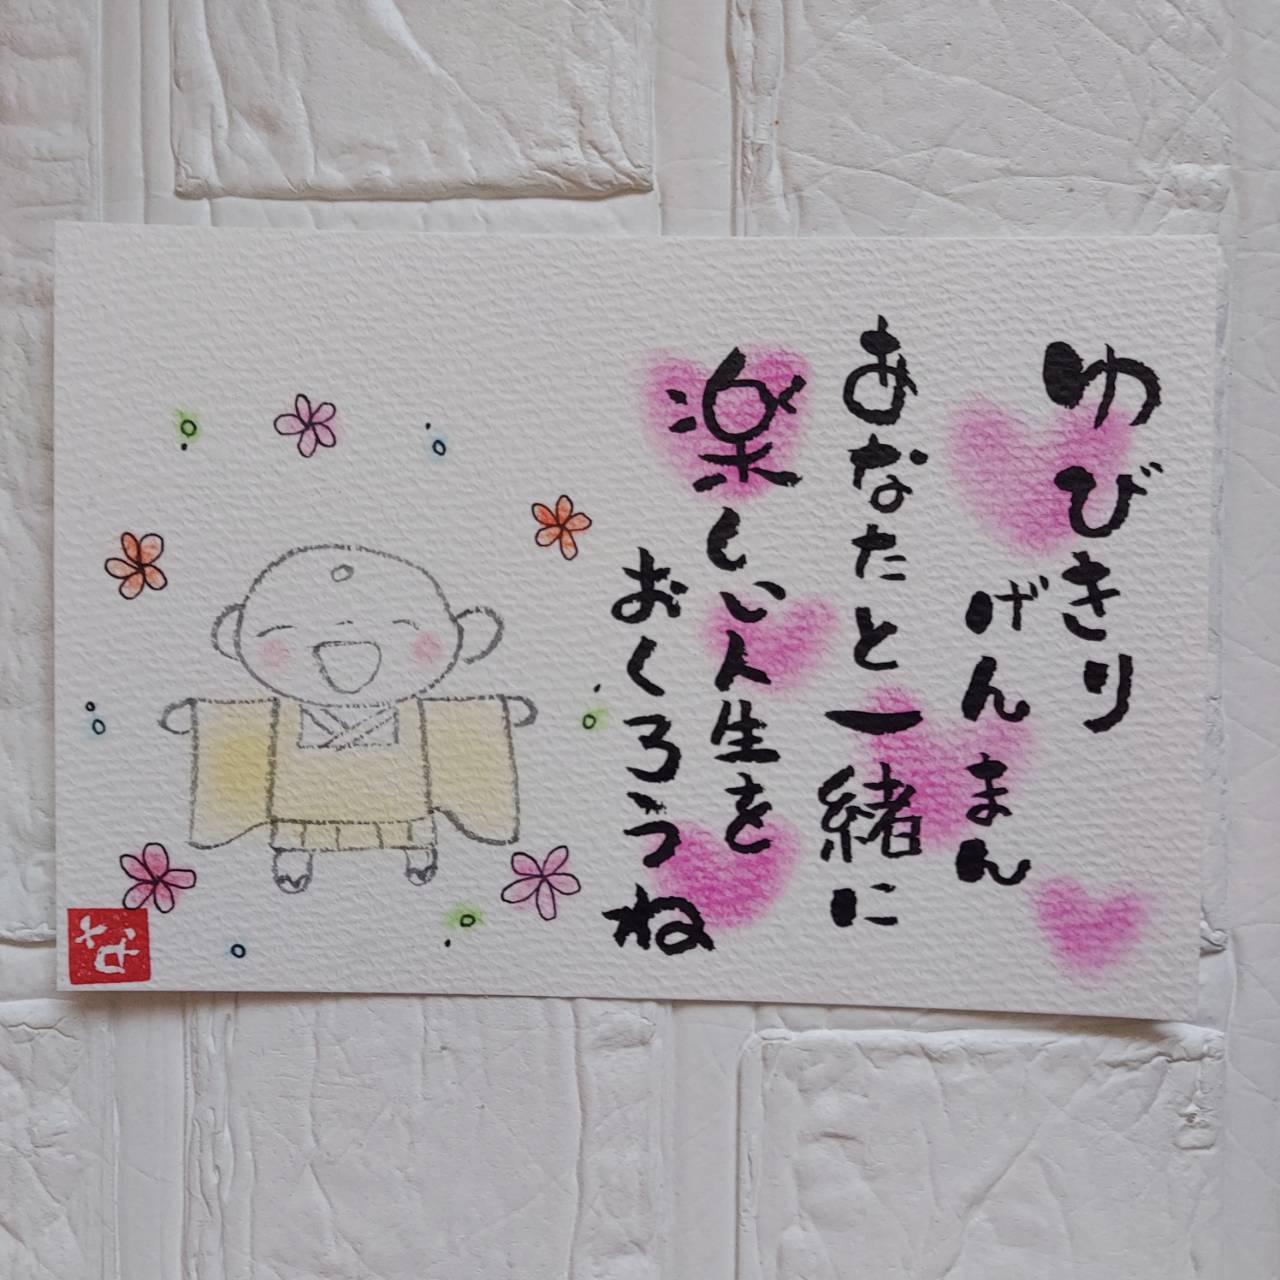 ゆびきり
げんまん
あなたと一緒に
楽しい人生を
おくろうね
な